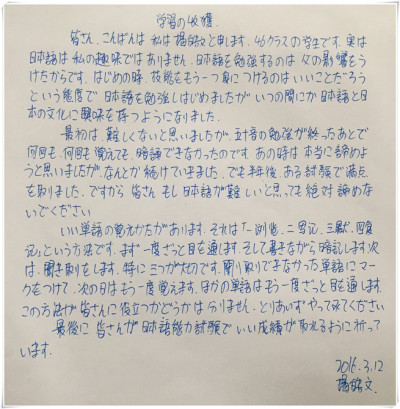 学習の収獲
皆さん、こんばんは 私は楊銘文と申します。46クラスの学生です。実は
日本語は私の趣味ではありません。日本語を勉強するのは父の影響をう
けたからです。はじめの時、技能をもう一つ身につけるのはいいことだろう
という態度で日本語を勉強しはじめましたが いつの間にか日本語と日
本の文化に興味を持つようになりました。
最初は 難しくないと思いましたが、五十音の勉強が終ったあとで
何回も、何回も覚えても、暗誦できなかったのです。あの時は本当に諦めよ
うと思いましたが、なんとか続けていきました。でも半年後、ある試験で満点
を取りました。ですから 皆さん もし日本語が難しいと思っても絶対諦めな
いでください
いい単語の覚えかたがあります。それは「一浏览、二写记、三默、四复
记」という方法です。まず一度ざっと目を通します。そして書きながら暗記します 次
は、聞き取りをします。特に三つが大切です。聞り取りできなかった単語にマー
クをつけて、次の日はもう一度覚えます。ほかの単語はもう一度ざっと目を通します。
この方法が皆さんに役立つかどうかは分りません。とりあいずやって来てください
最後に 皆さんが日本語能力試験でいい成績が取れるように祈って
います。
2016.3.12
楊銘文